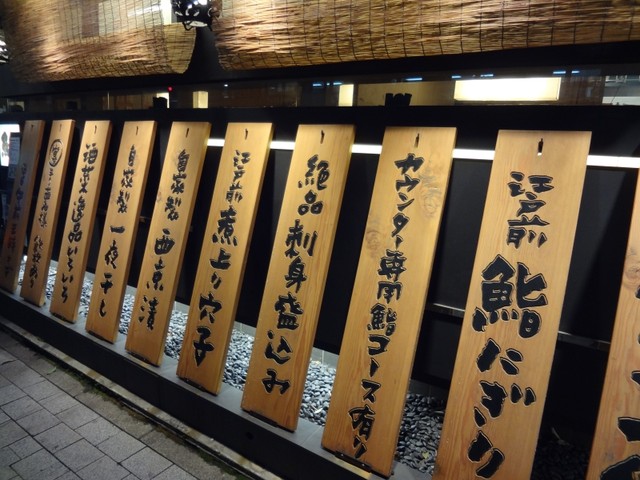 江戸前 鮨 にぎり
カウンター専用鮨コース有り
絶品 刺身盛込み
江戸前 煮上り穴子
自家製 西京漬
自家製 一夜干し
酒菜 逸品いろいろ